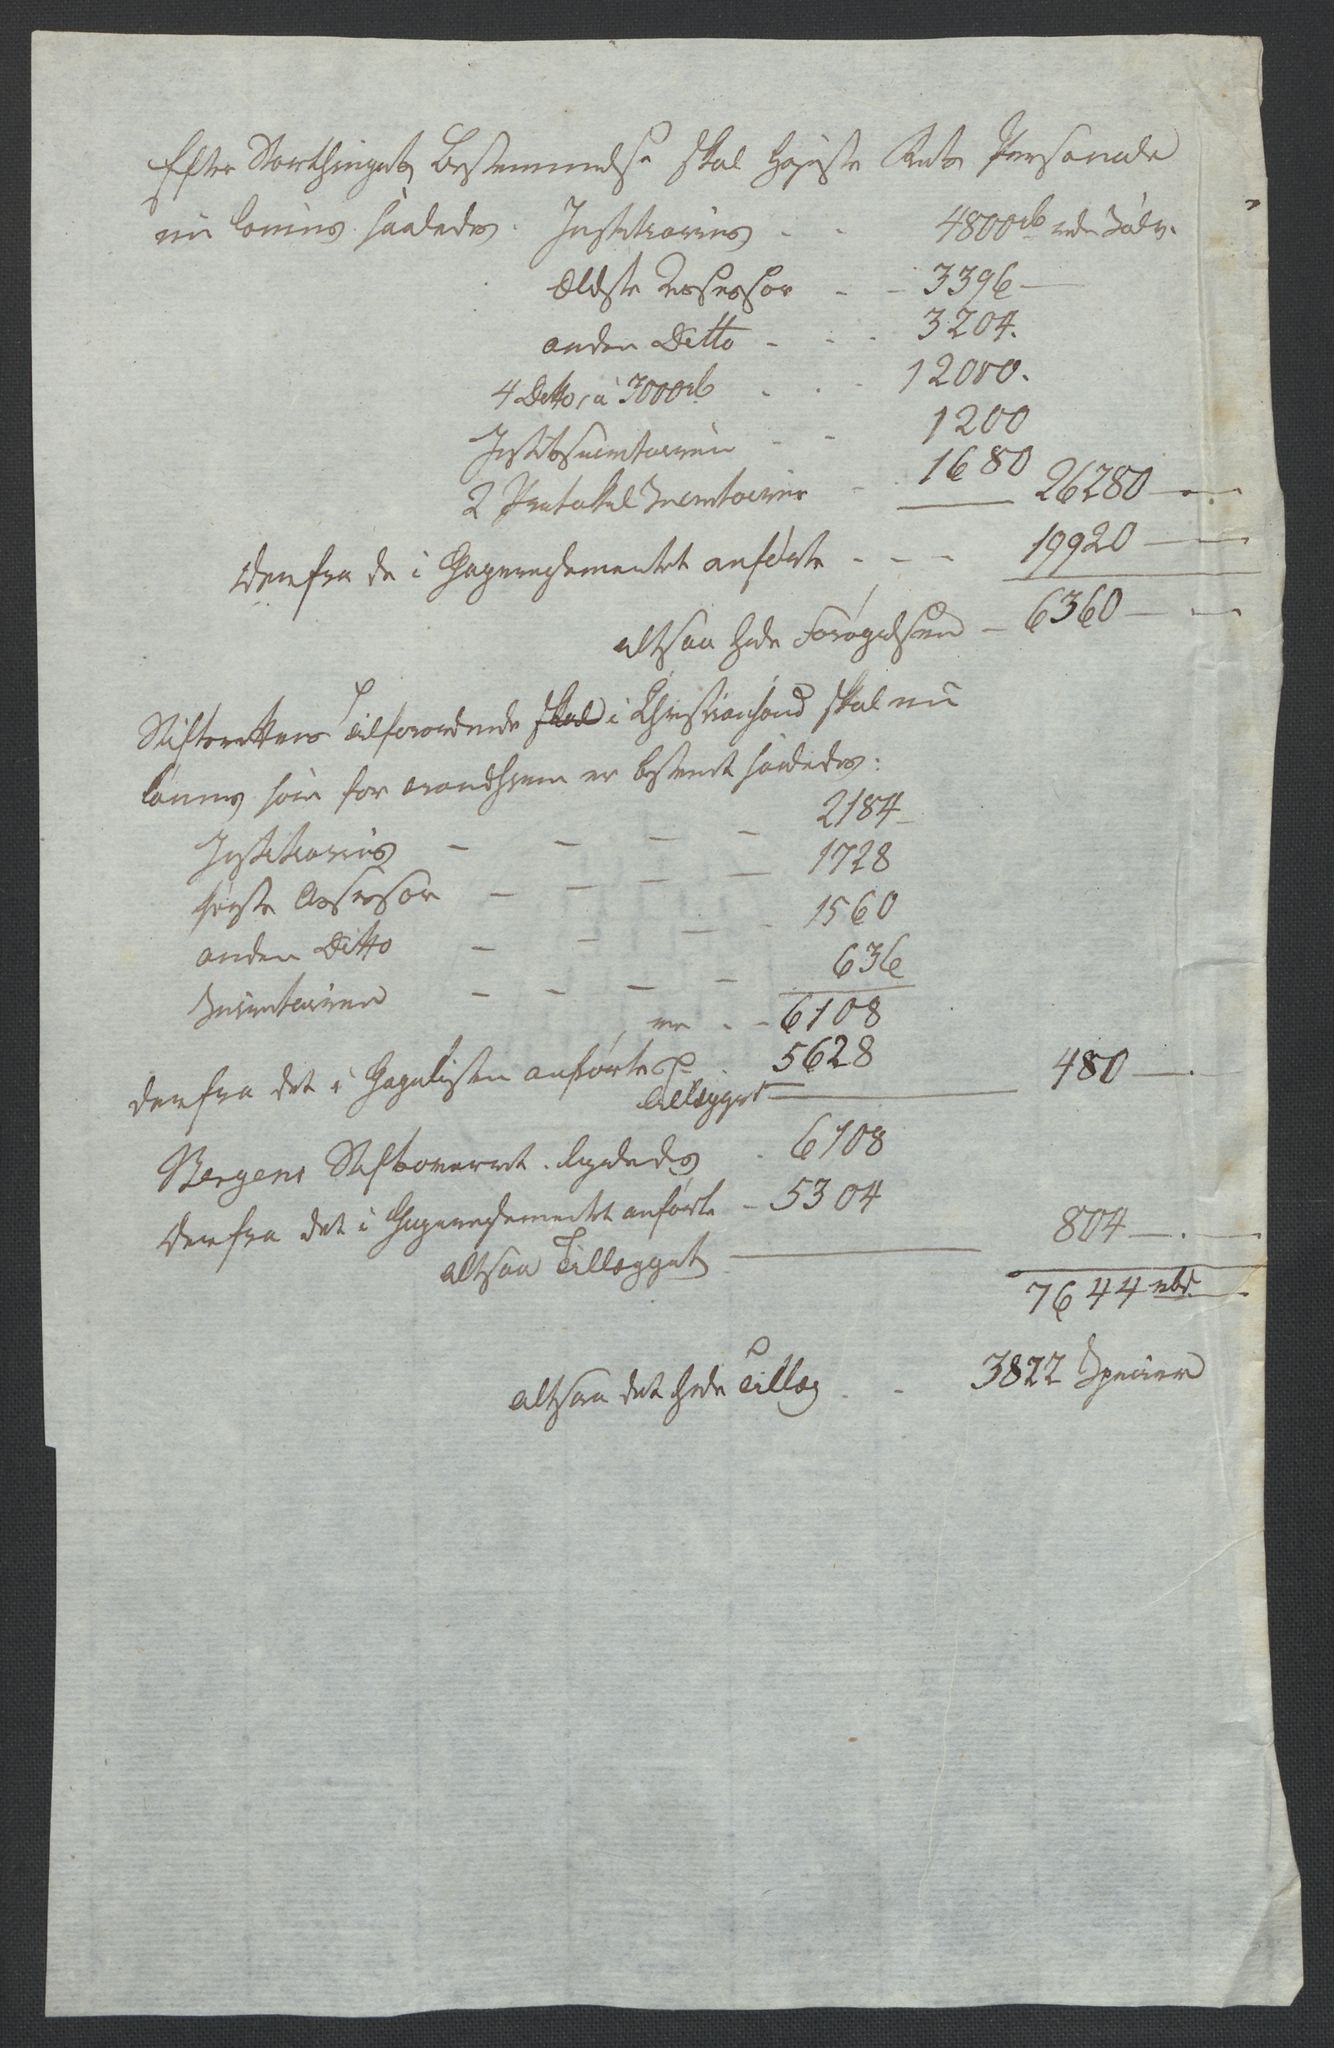 Efter Storthingets Bestemmelse skal Høieste Rets Personale
nu lønnes saaledes. Justitiarius - - 4800 rb rede Sølv.
Ældste Assessor - - 3396 —
anden Ditto - - - 3204.
4 Ditto, a 3000 rb - - - 12000.
Justitssecretairen - - 1200
2 Protokol Secretairer - 1680 26280 —
Derfra de i Gagereglementet anførte - - - 19920 —
altsaa hele Forøgelsen - 6360 —
Stiftsrettens Tilforordnede skal i Christiansand skal nu
lønnes som for Trondhiem er bestemt saaledes:
Justitiarius - - - - 2184
første Assessor - - - - 1728
anden Ditto - - - - 1560
Secretairen - - - - 636
er - - 6108
Derfra det i Gagelisten anførte - 5628 480 —
Tillægget
Bergens Stiftsoverret ligeledes - 6108
Derfra det i Gagereglementet anførte - 5304
altsaa Tillægget 804 —
7644 rbd
altsaa det hele Tillæg - - 3822 Species